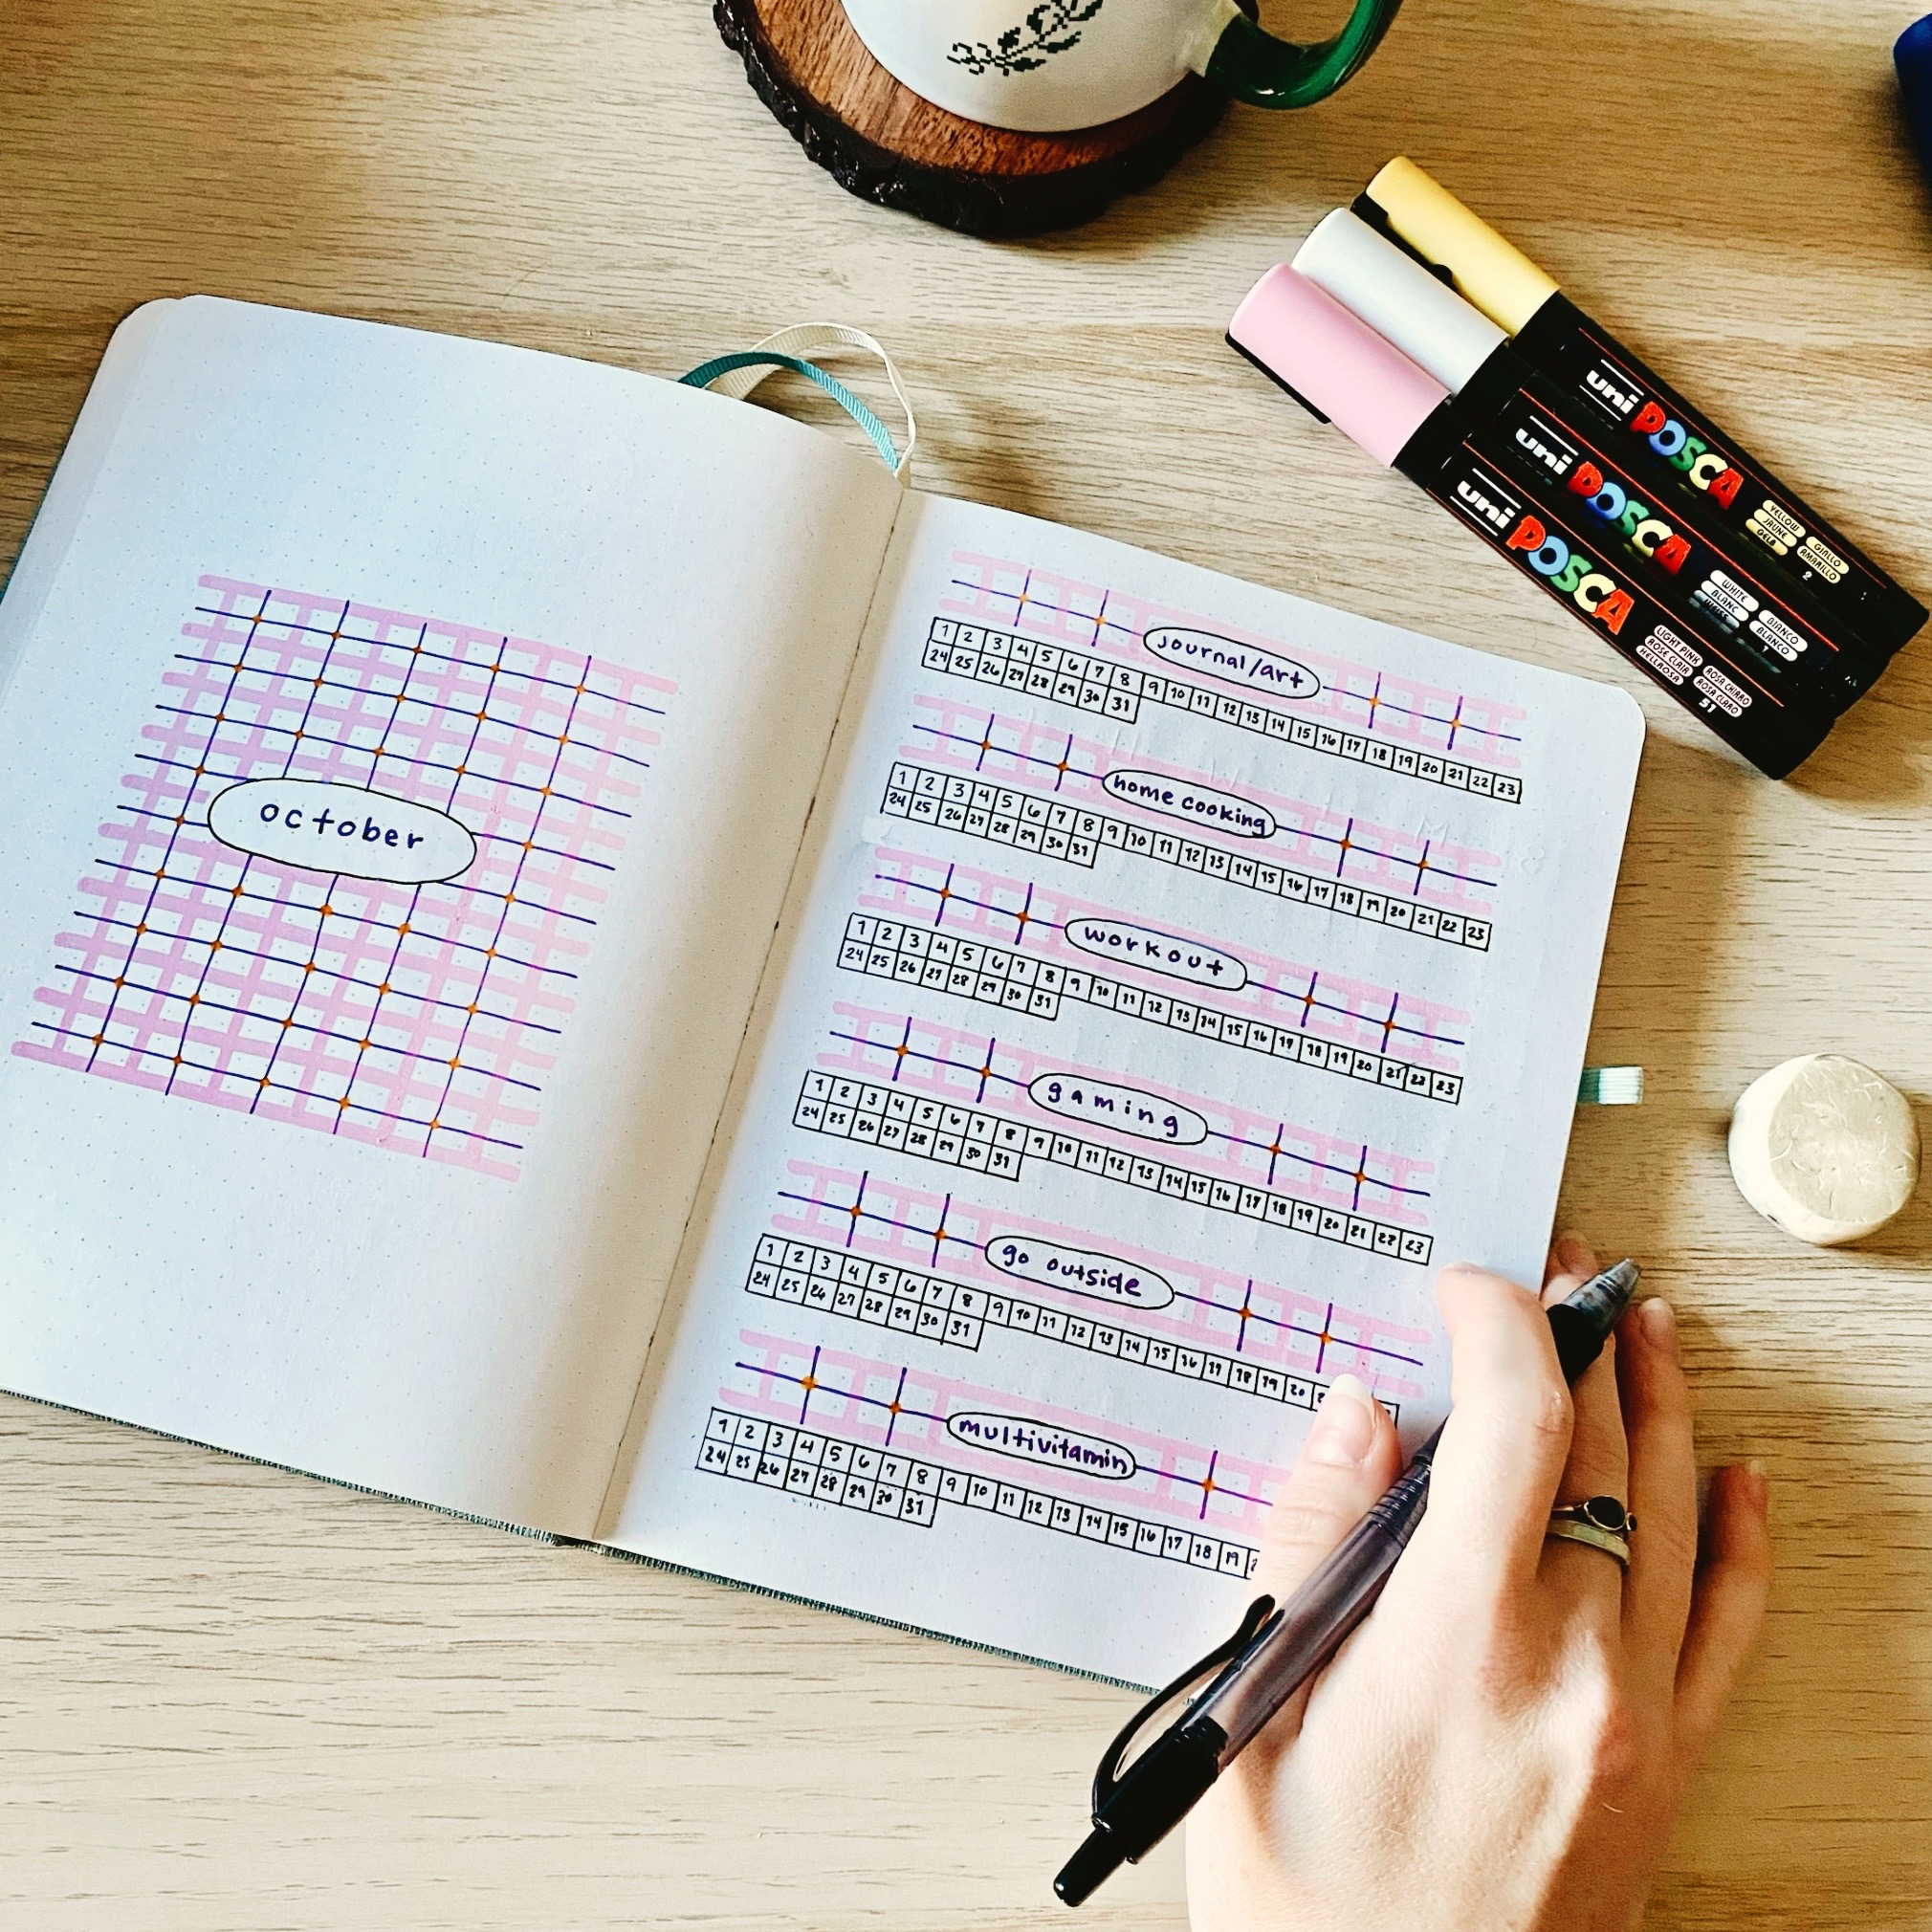 october
journal/art
1 2 3 4 5 6 7 8 9 10 11 12 13 14 15 16 17 18 19 20 21 22 23
24 25 26 27 28 29 30 31
home cooking
1 2 3 4 5 6 7 8 9 10 11 12 13 14 15 16 17 18 19 20 21 22 23
24 25 26 27 28 29 30 31
workout
1 2 3 4 5 6 7 8 9 10 11 12 13 14 15 16 17 18 19 20 21 22 23
24 25 26 27 28 29 30 31
gaming
1 2 3 4 5 6 7 8 9 10 11 12 13 14 15 16 17 18 19 20 21 22 23
24 25 26 27 28 29 30 31
go outside
1 2 3 4 5 6 7 8 9 10 11 12 13 14 15 16 17 18 19 20
24 25 26 27 28 29 30 31
multivitamin
1 2 3 4 5 6 7 8 9 10 11 12 13 14 15 16 17 18 19
24 25 26 27 28 29 30 31
uni POSCA
YELLOW GIALLO
JAUNE AMARILLO
GELB 2
uni POSCA
WHITE BIANCO
BLANC BLANCO
uni POSCA
LIGHT PINK ROSA CHIARO
ROSE CLAIR ROSA CLARO
HELLROSA 51